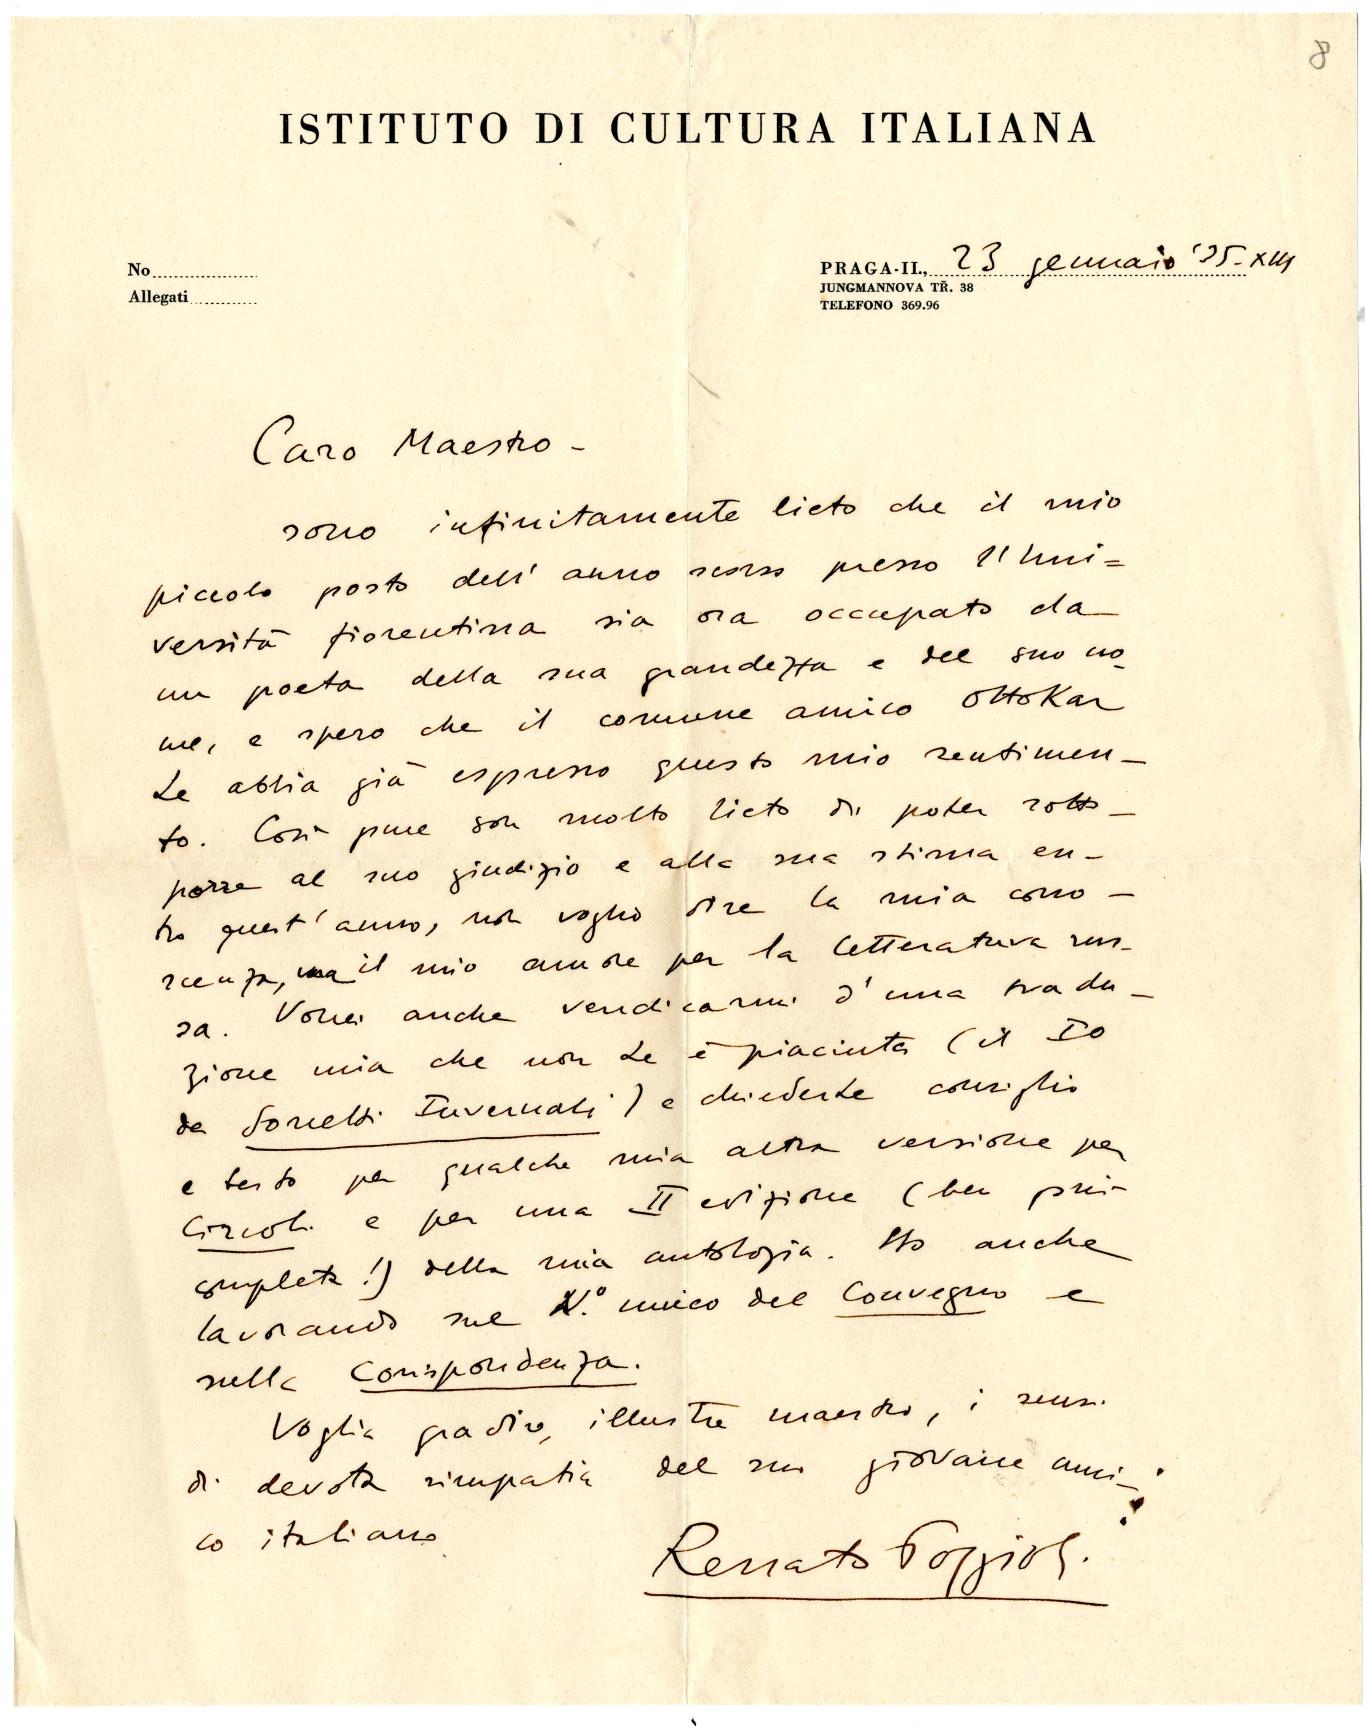 8
ISTITUTO DI CULTURA ITALIANA
No
Allegati
PRAGA-II., 23 gennaio '35-XIII
JUNGMANNOVA TŘ. 38
TELEFONO 369.96
Caro Maestro -
sono infinitamente lieto che il mio
piccolo posto dell' anno scorso presso l'Uni=
versità fiorentina sia ora occupato da
un poeta della sua grandezza e del suo no-
me, e spero che il comune amico Ottokar
Le abbia già espresso questo mio sentimen-
to. Così pure son molto lieto di poter sotto-
porre al suo giudizio e alla sua stima en-
tro quest' anno, non voglio dire la mia cono-
scenza, ma il mio amore per la letteratura rus-
sa. Vorrei anche vendicarmi d' una tradu-
zione mia che non Le è piaciuta (il Io
dei Sonetti Invernali) e chiederLe consiglio
e testo per qualche mia altra versione per
Circoli e per una II edizione (ben più
completa!) della mia antologia. Sto anche
lavorando sul N.° unico del Convegno e
sulla Corrispondenza.
Voglia gradire, illustre maestro, i sensi
di devota simpatia del suo giovane ami-
co italiano
Renato Poggioli